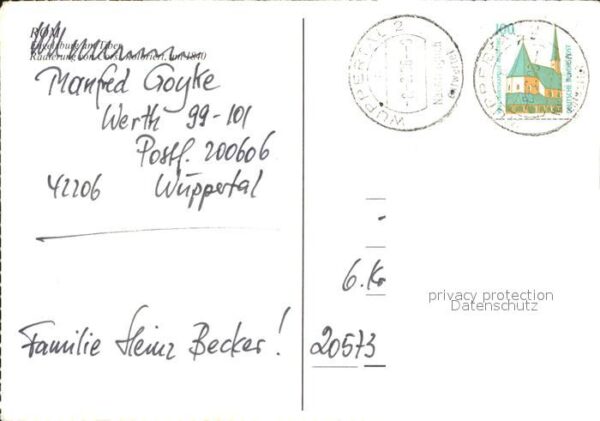 ROM
Manfred Goyke
Werth 99-101
Postf. 200606
42206 Wuppertal
Familie Heinz Becker!
WUPPERTAL 2
100
DEUTSCHE BUNDESPOST
6. Kr
20573
privacy protection
Datenschutz